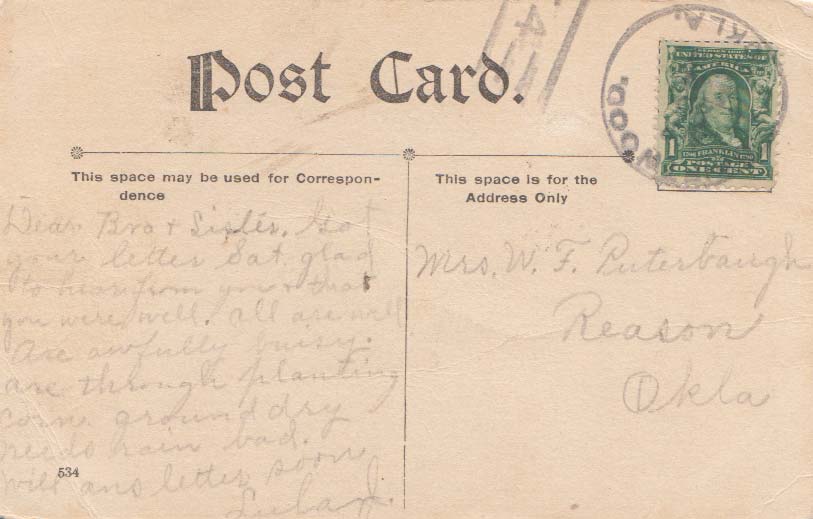 Post Card.
This space may be used for Correspon-
dence
This space is for the
Address Only
OKLA.
WOOD
SERIES 1902
UNITED STATES OF
AMERICA
1 FRANKLIN 1
POSTAGE
ONE CENT
Dear Bro & Sister. Got
your letter Sat. glad
to hear from you & that
you were well. all are well
are awfully buisy.
are through planting
corn. ground dry
needs rain bad.
will ans letter soon
534
Mrs. W. F. Puterbaugh
Reason
Okla